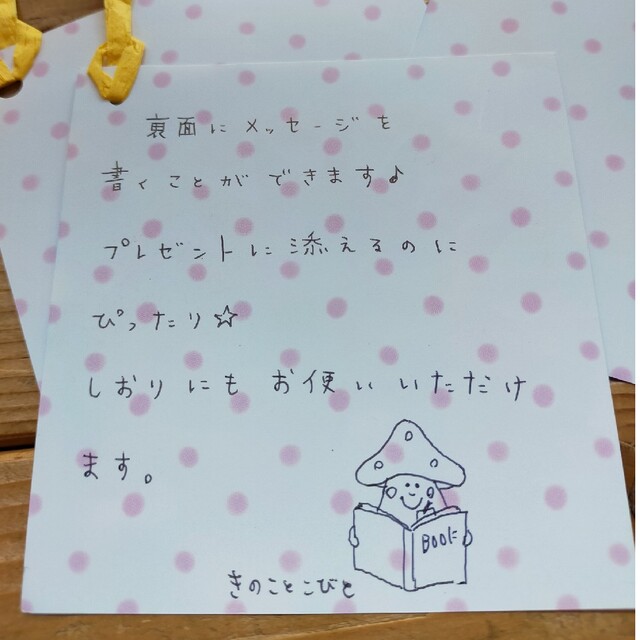 裏面にメッセージを
書くことができます♪
プレゼントに添えるのに
ぴったり☆
しおりにもお使いいただけ
ます。
BOOK
きのことこびと